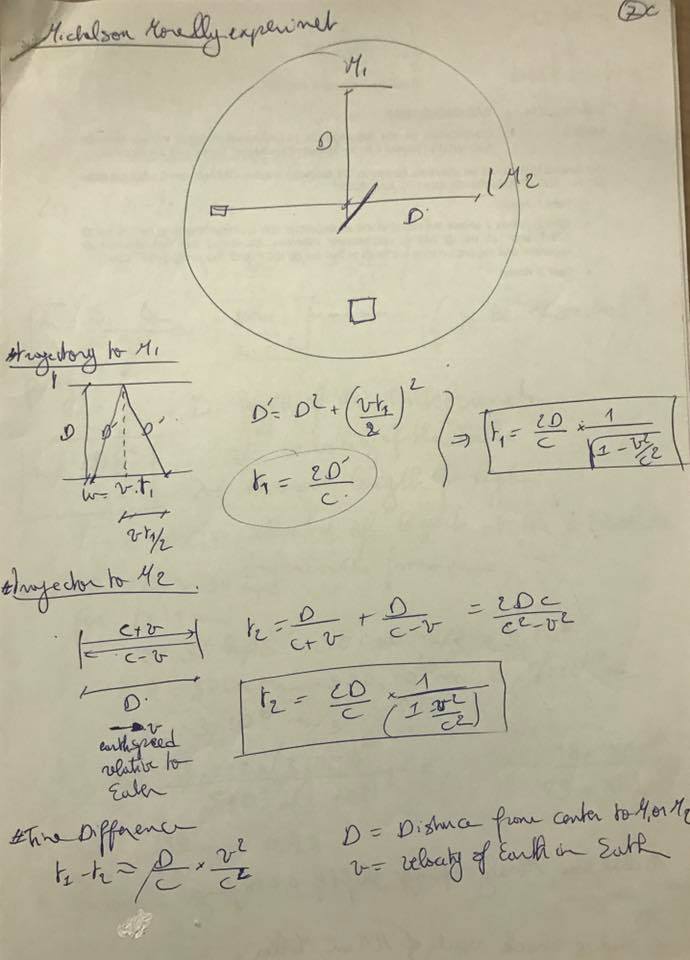 Michelson Morelly experimet
7c
M1
D
M2
D
#trajectory to M1
D D' D'
w= v.t1
vt1/2
D' = D² + (vt1/2)² } ⇒ t1 = 2D/c × 1/√(1 - v²/c²)
t1 = 2D'/c.
#Trajector to M2
c+v
c-v
D.
→ v
earth speed
relative to
Eater
t2 = D/(c+v) + D/(c-v) = 2Dc/(c²-v²)
t2 = 2D/c × 1/(1 v²/c²)
#Time Difference
t1 - t2 ≈ D/c × v²/c²
D = Distance from center to M1 or M2
v = velocity of Earth in Eath